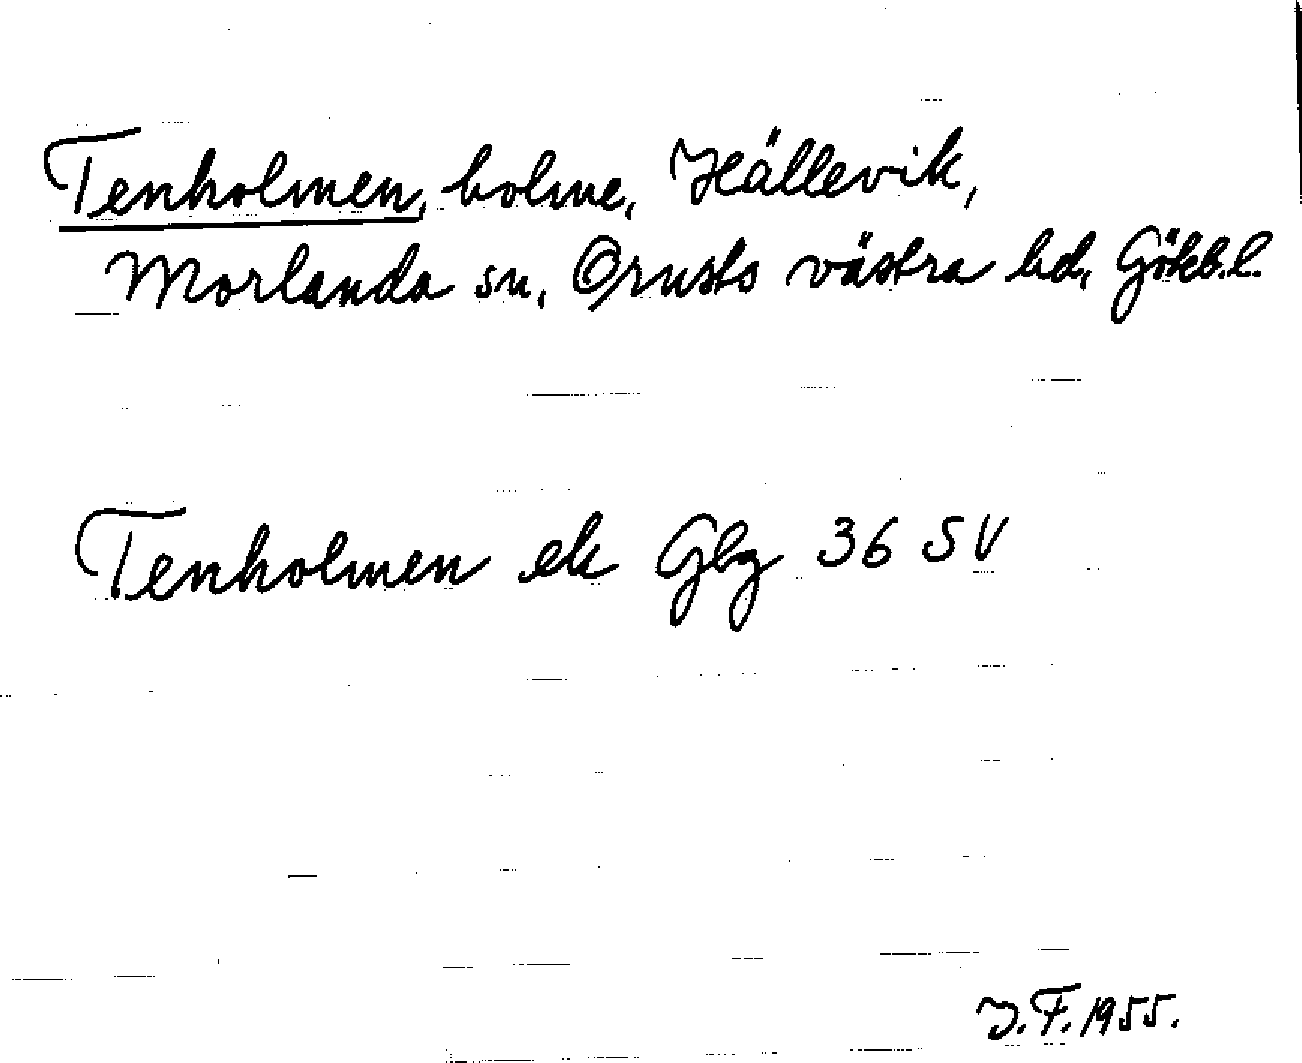 Tenholmen, holme, Hällevik,
Morlanda sn, Orusts västra hd, Götkb.l.
Tenholmen ek Gbg 36 SV
J.F. 1955.